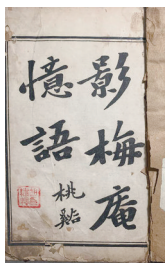 影梅庵
憶語
桃谿